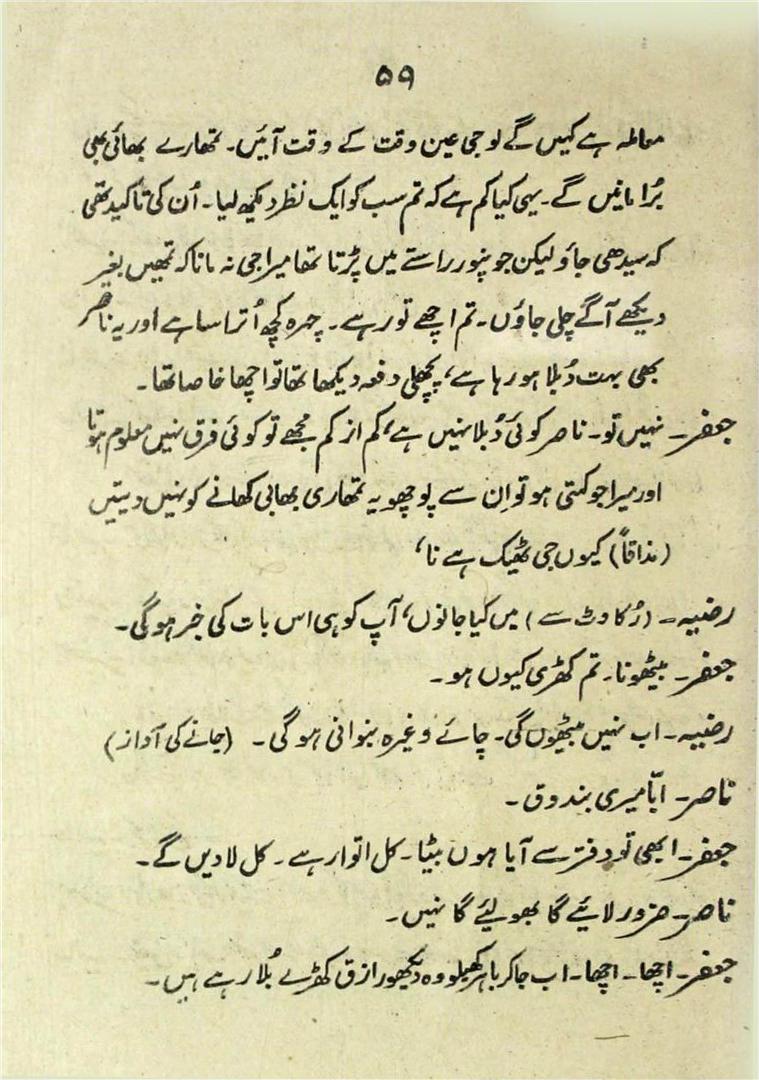 ۵۹
معاملہ ہے کہیں گے لو جی عین وقت کے وقت آئیں۔ تمھارے بھائی بھی
بُرا مانیں گے۔ یہی کیا کم ہے کہ تم سب کو ایک نظر دیکھ لیا۔ اُن کی تاکید تھی
کہ سیدھی جاؤ لیکن جو پنور راستے میں پڑتا تھا میرا جی نہ مانا کہ تمھیں بغیر
دیکھے آگے چلی جاؤں۔ تم اچھے تو رہے۔ چہرہ کچھ اُترا سا ہے اور یہ ناصر
بھی بہت دُبلا ہو رہا ہے، پچھلی دفعہ دیکھا تھا تو اچھا خاصا تھا۔
جعفر۔ نہیں تو۔ ناصر کوئی دُبلا نہیں ہے، کم از کم مجھے تو کوئی فرق نہیں معلوم ہوتا
اور میرا جو کہتی ہو تو اِن سے پوچھو یہ تمھاری بھابی کھانے کو نہیں دیتیں
(مذاقاً) کیوں جی ٹھیک ہے نا،
رضیہ۔ (رُکاوٹ سے) میں کیا جانوں، آپ کو ہی اس بات کی خبر ہو گی۔
جعفر۔ بیٹھو نا۔ تم کھڑی کیوں ہو۔
رضیہ۔ اب نہیں بیٹھوں گی۔ چائے وغیرہ بنوانی ہو گی۔ (جانے کی آواز)
ناصر۔ ابّا میری بندوق۔
جعفر۔ ابھی تو دفتر سے آیا ہوں بیٹا۔ کل اتوار ہے۔ کل لا دیں گے۔
ناصر۔ ضرور لائیے گا بھولئے گا نہیں۔
جعفر۔ اچھا۔ اچھا۔ اب جا کر باہر کھیلو وہ دیکھو رازق کھڑے بُلا رہے ہیں۔